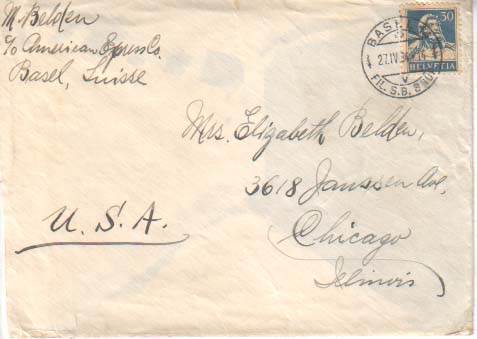 M. Belden
c/o American Express Co.
Basel, Suisse
30
HELVETIA
BAS
27.IV.3
FIL. S.B. B
Mrs. Elizabeth Belden,
3618 Janssen Ave,
Chicago
Illinois
U. S. A.